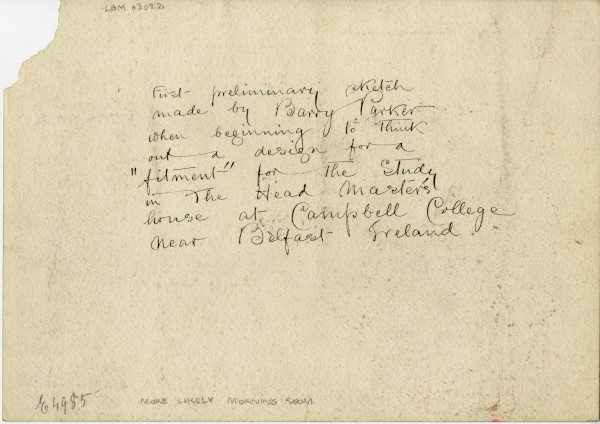 LBM 4309.2)
First preliminary sketch
made by Barry Parker
when beginning to think
out a design for a
"fitment" for the Study
in The Head Master's
house at Campbell College
near Belfast Ireland.
MORE LIKELY MORNING ROOM